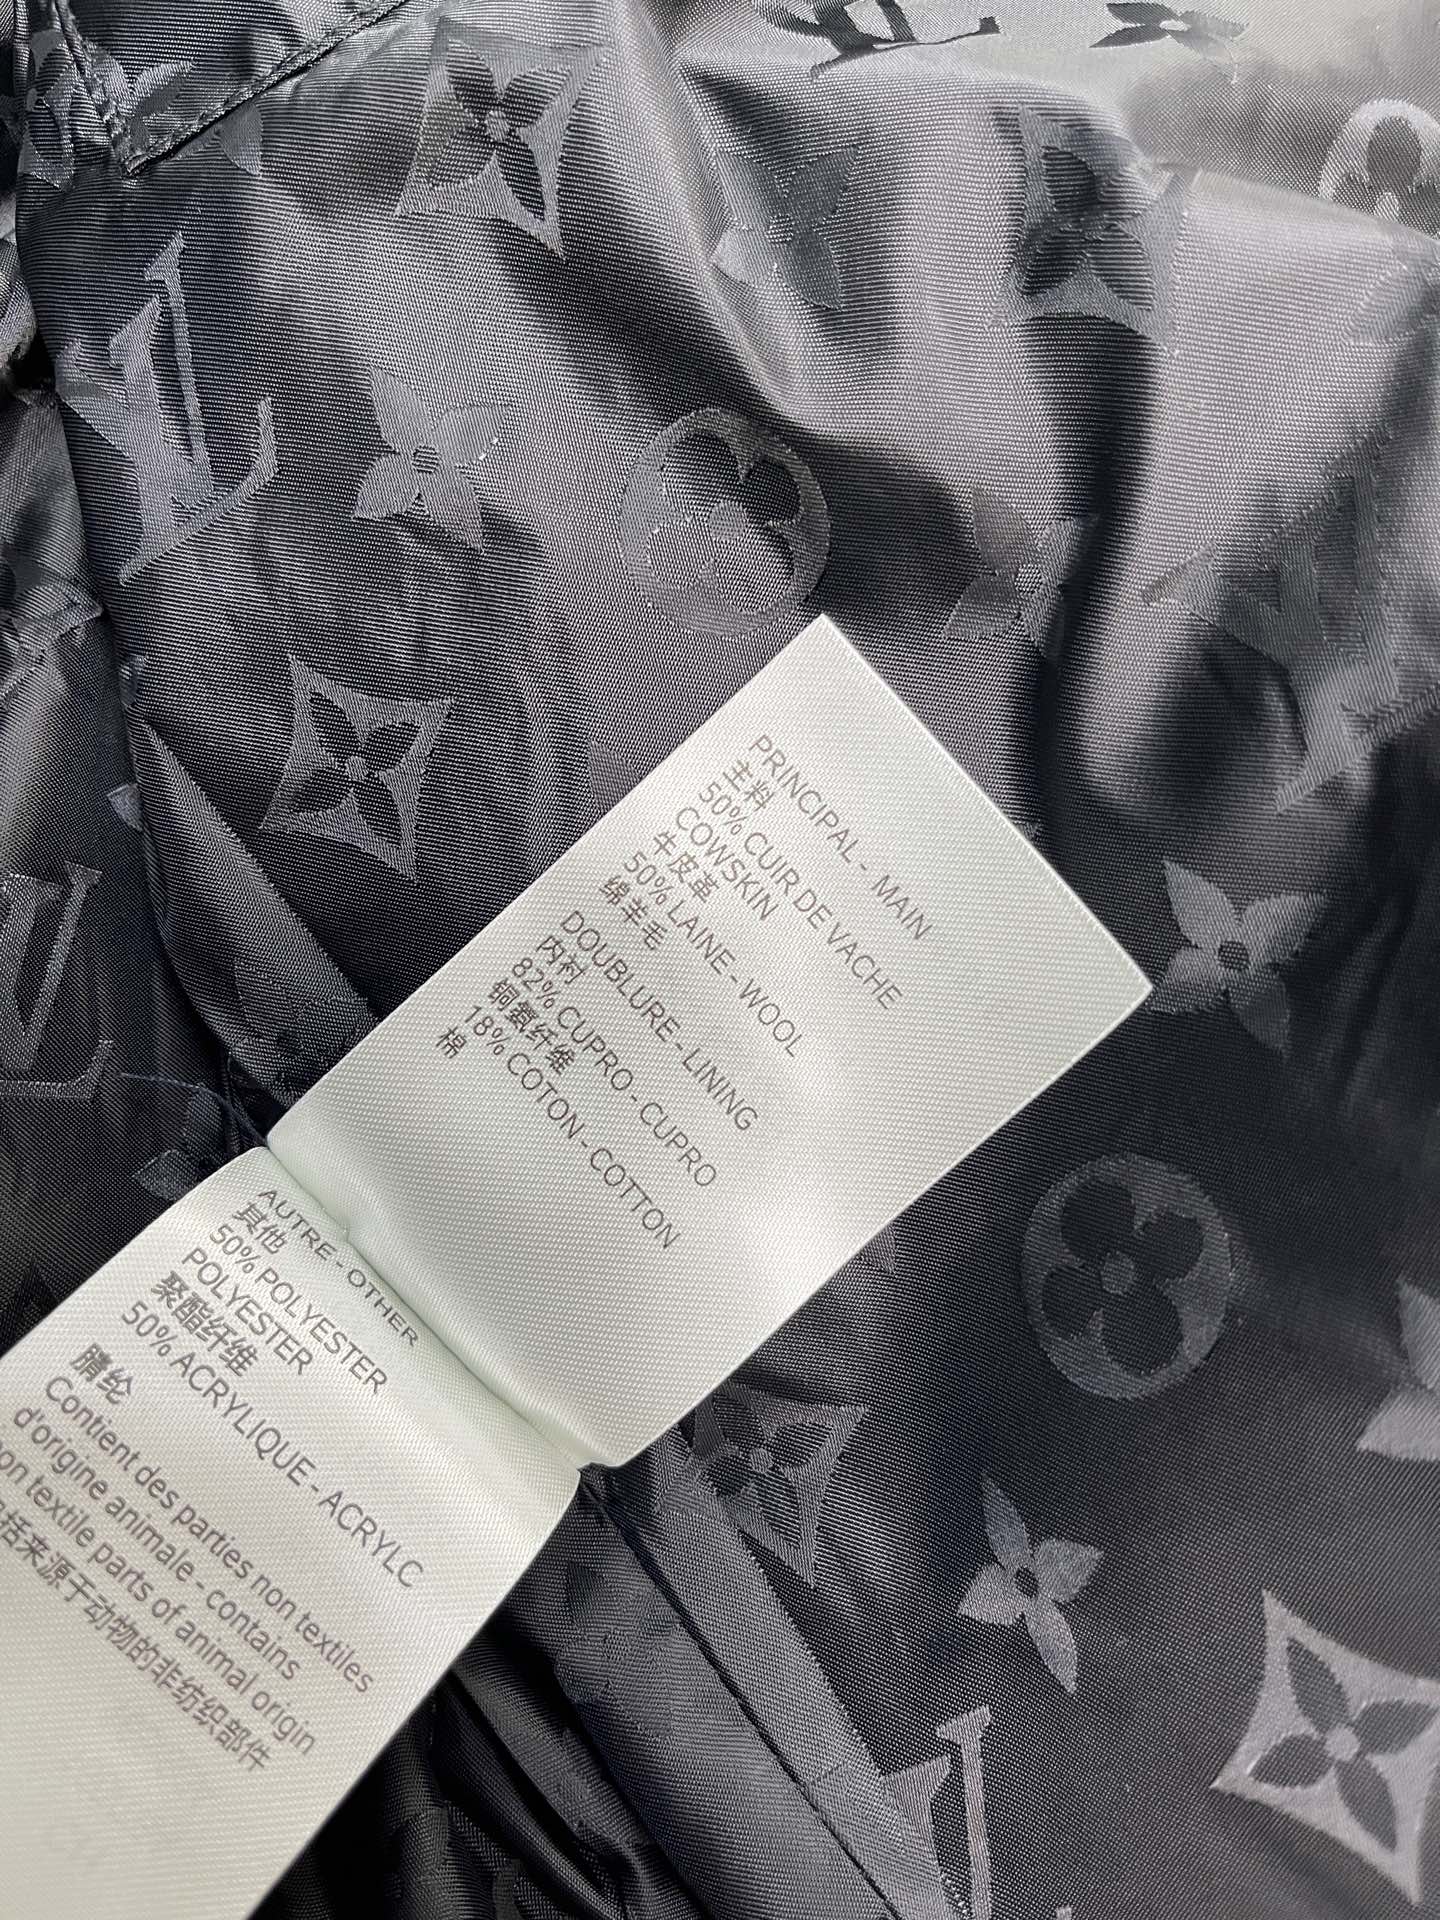 PRINCIPAL - MAIN
主料
50% CUIR DE VACHE
COWSKIN
牛皮革
50% LAINE - WOOL
绵羊毛
DOUBLURE - LINING
内衬
82% CUPRO - CUPRO
铜氨纤维
18% COTON - COTTON
棉
AUTRE - OTHER
其他
50% POLYESTER
POLYESTER
聚酯纤维
50% ACRYLIQUE - ACRYLC
腈纶
Contient des parties non textiles
d'origine animale - contains
non textile parts of animal origin
括来源于动物的非纺织部件